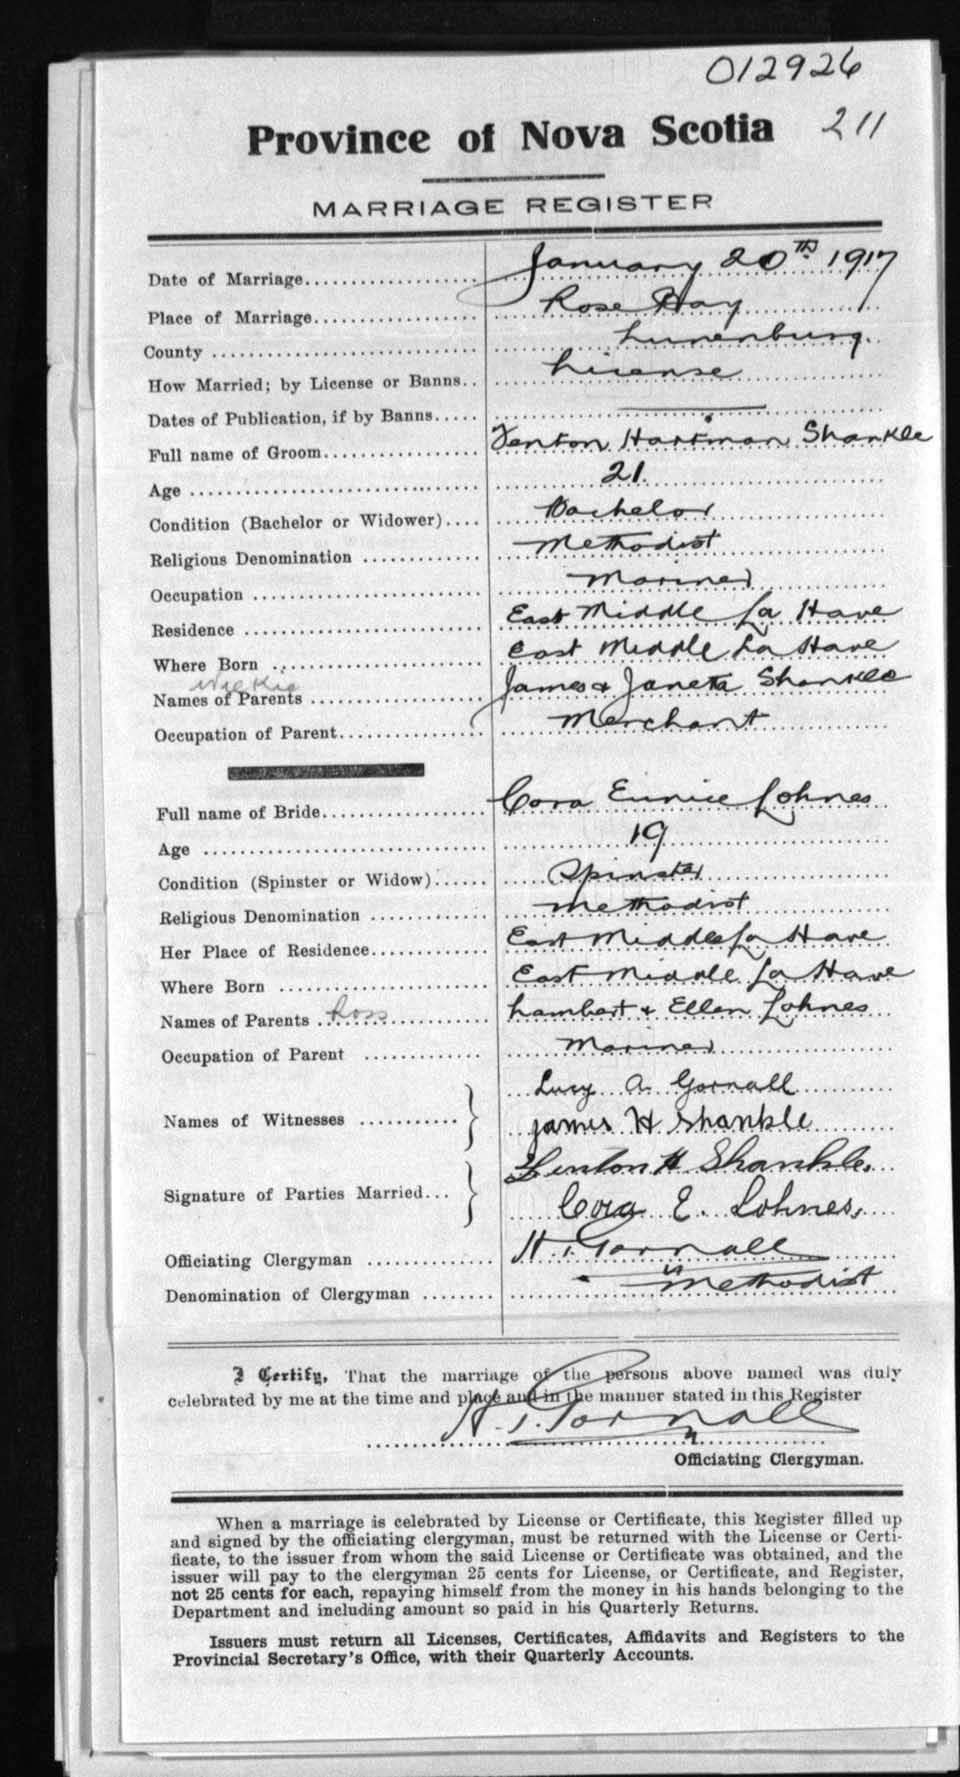 012926
Province of Nova Scotia 211
MARRIAGE REGISTER
Date of Marriage................... January 20TH 1917
Place of Marriage.................. Rose Bay
County ............................ Lunenburg
How Married; by License or Banns.. License
Dates of Publication, if by Banns..... ——
Full name of Groom................. Fenton Hartman Shankle
Age ............................... 21
Condition (Bachelor or Widower).... Bachelor
Religious Denomination ............ Methodist
Occupation ........................ Mariner
Residence ......................... East Middle La Have
Where Born ........................ East Middle La Have
Wilkie
Names of Parents .................. James & Janetta Shankle
Occupation of Parent............... Merchant
Full name of Bride................. Cora Eunice Lohnes
Age ............................... 19
Condition (Spinster or Widow)...... Spinster
Religious Denomination ............ Methodist
Her Place of Residence............. East Middle La Have
Where Born ........................ East Middle La Have
Names of Parents ..Ross............ Lambert & Ellen Lohnes
Occupation of Parent .............. Mariner
Lucy A. Gornall
Names of Witnesses ........... }
James H Shankle
Fenton H Shankle.
Signature of Parties Married... }
Cora E. Lohnes.
Officiating Clergyman ............. H. T. Gornall
Denomination of Clergyman ........ Methodist
I Certify, That the marriage of the persons above named was duly
celebrated by me at the time and place and in the manner stated in this Register
H. T. Gornall
Officiating Clergyman.
When a marriage is celebrated by License or Certificate, this Register filled up
and signed by the officiating clergyman, must be returned with the License or Certi-
ficate, to the issuer from whom the said License or Certificate was obtained, and the
issuer will pay to the clergyman 25 cents for License, or Certificate, and Register,
not 25 cents for each, repaying himself from the money in his hands belonging to the
Department and including amount so paid in his Quarterly Returns.
Issuers must return all Licenses, Certificates, Affidavits and Registers to the
Provincial Secretary's Office, with their Quarterly Accounts.